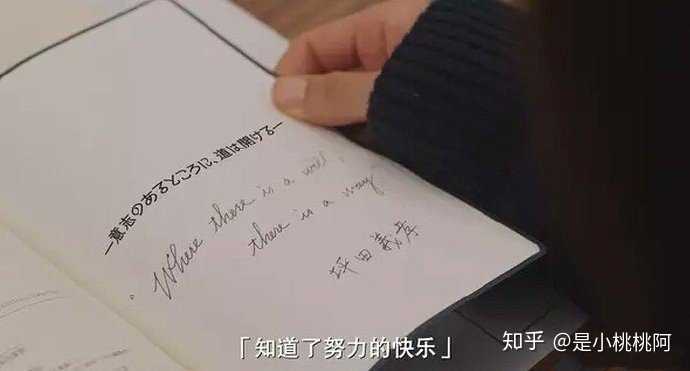 —意志のあるところに、道は開ける—
"Where there is a will,
there is a way"
坪田義孝
「知道了努力的快乐」
知乎 @是小桃桃阿